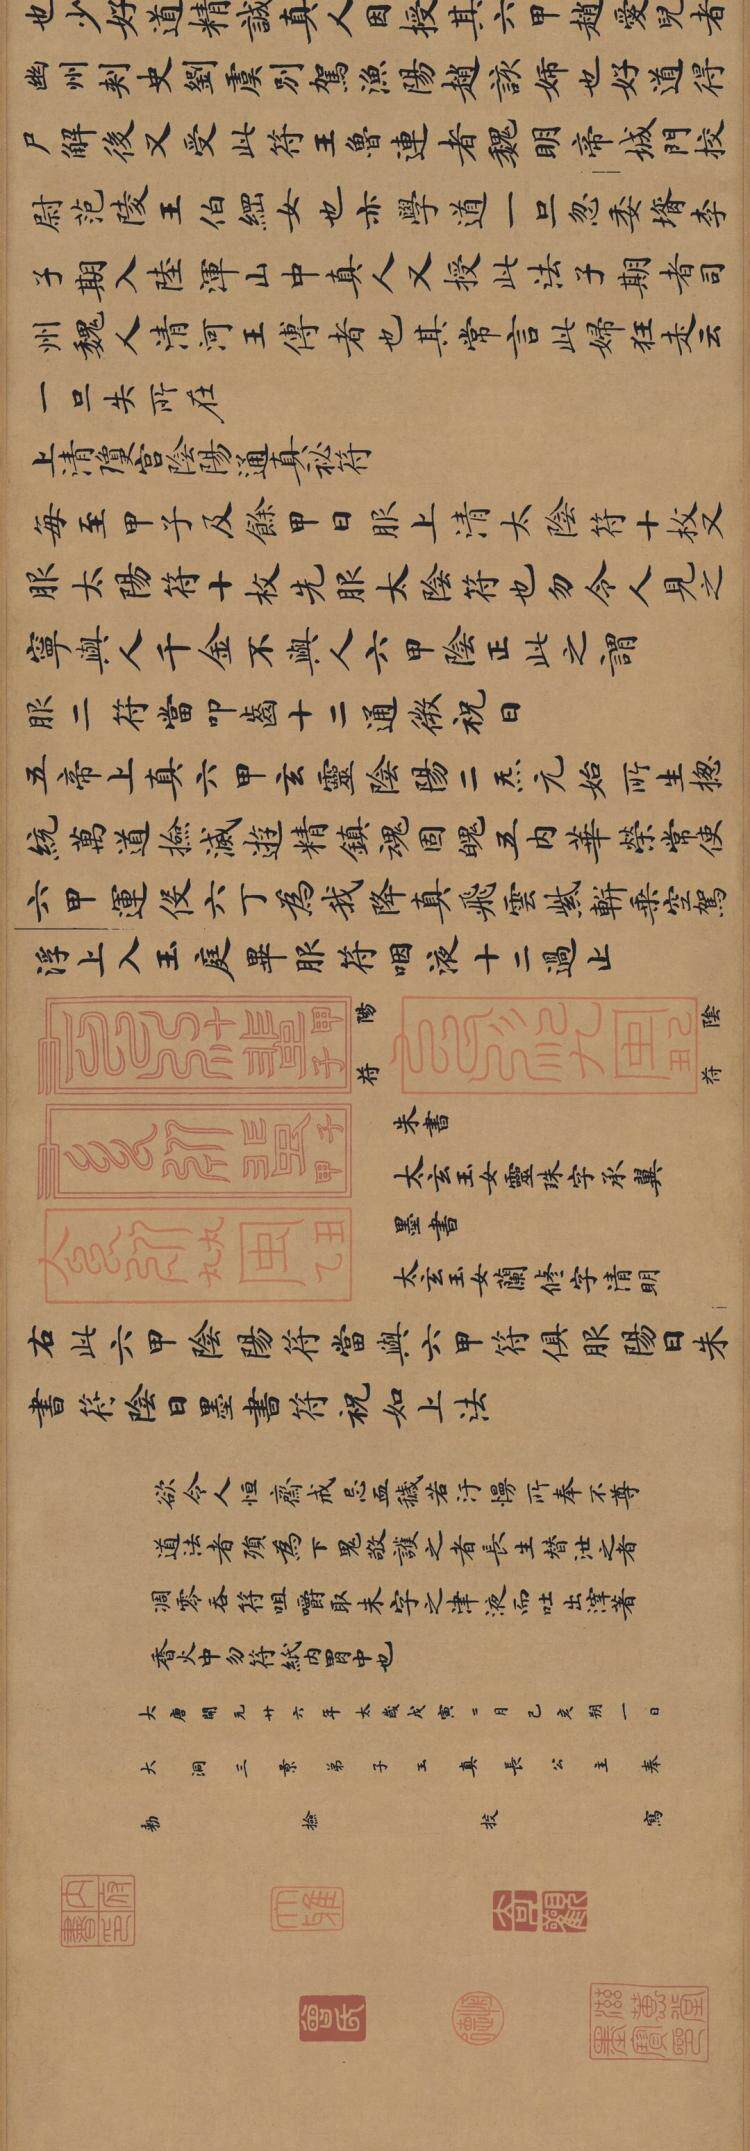 也少好道精誠真人因授其六甲趙愛兒者
幽州刾史劉虞別駕漁陽趙該姊也好道得
尸解後又受此符王魯連者魏明帝城門校
尉范陵王伯綱女也亦學道一旦忽委壻李
子期入陸渾山中真人又授此法子期者司
州魏人清河王傅者也其常言此婦狂走云
一旦失所在
上清瓊宮陰陽通真祕符
每至甲子及餘甲日服上清太陰符十枚又
服太陽符十枚先服太陰符也勿令人見之
寧與人千金不與人六甲陰正此之謂
服二符當叩齒十二通微祝曰
五帝上真六甲玄靈陰陽二炁元始所生揔
統萬道撿滅遊精鎮魂固魄五內華榮常使
六甲運役六丁為我降真飛雲紫軿乗空駕
浮上入玉庭畢服符咽液十二過止
陰符
己丑
陽符
甲子
朱書
太玄玉女靈珠字承翼
墨書
太玄玉女蘭修字清明
子甲
乙丑
右此六甲陰陽符當與六甲符俱服陽日朱
書符陰日墨書符祝如上法
欲令人恒齋戒忌血穢若汙慢所奉不尊
道法者殞為下鬼敬護之者長生替泄之者
凋零吞符咀嚼取朱字之津液而吐出滓著
香火中勿符紙內胃中也
大唐開元廿六年太歲戊寅二月己亥朔一日
大洞三景弟子玉真長公主奉
勅檢挍寫